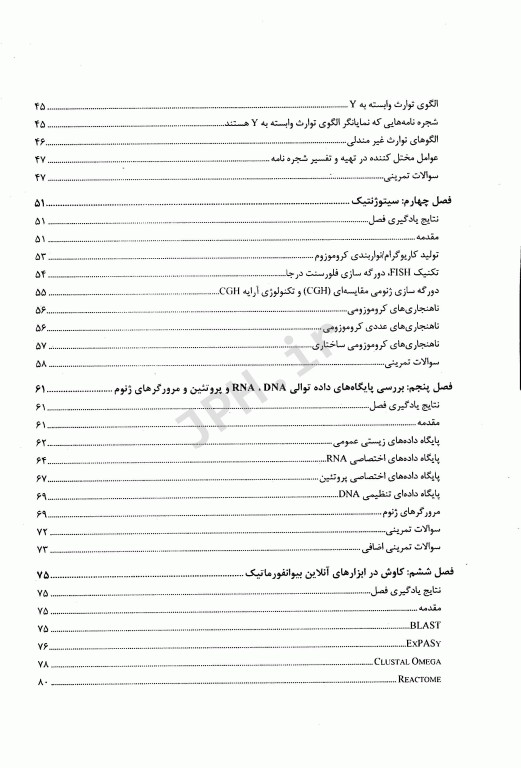 الگوی توارث وابسته به Y ..... ۴۵
شجره نامه‌هایی که نمایانگر الگوی توارث وابسته به Y هستند ..... ۴۵
الگوهای توارث غیر مندلی ..... ۴۶
عوامل مختل کننده در تهیه و تفسیر شجره نامه ..... ۴۷
سوالات تمرینی ..... ۴۷
فصل چهارم: سیتوژنتیک ..... ۵۱
نتایج یادگیری فصل ..... ۵۱
مقدمه ..... ۵۱
تولید کاریوگرام/نواربندی کروموزوم ..... ۵۳
تکنیک FISH، دورگه سازی فلورسنت درجا ..... ۵۴
دورگه سازی ژنومی مقایسه‌ای (CGH) و تکنولوژی آرایه CGH ..... ۵۵
ناهنجاری‌های کروموزومی ..... ۵۶
ناهنجاری‌های عددی کروموزومی ..... ۵۶
ناهنجاری‌های کروموزومی ساختاری ..... ۵۷
سوالات تمرینی ..... ۵۸
فصل پنجم: بررسی پایگاه‌های داده توالی RNA ، DNA و پروتئین و مرورگرهای ژنوم ..... ۶۱
نتایج یادگیری فصل ..... ۶۱
مقدمه ..... ۶۱
پایگاه داده‌های زیستی عمومی ..... ۶۲
پایگاه داده‌های اختصاصی RNA ..... ۶۴
پایگاه داده‌های اختصاصی پروتئین ..... ۶۷
پایگاه داده‌ای تنظیمی DNA ..... ۶۹
مرورگرهای ژنوم ..... ۶۹
سوالات تمرینی ..... ۷۲
سوالات تمرینی اضافی ..... ۷۳
فصل ششم: کاوش در ابزارهای آنلاین بیوانفورماتیک ..... ۷۵
نتایج یادگیری فصل ..... ۷۵
مقدمه ..... ۷۵
BLAST ..... ۷۵
ExPASy ..... ۷۶
Clustal Omega ..... ۷۸
Reactome ..... ۸۰
JPH.ir